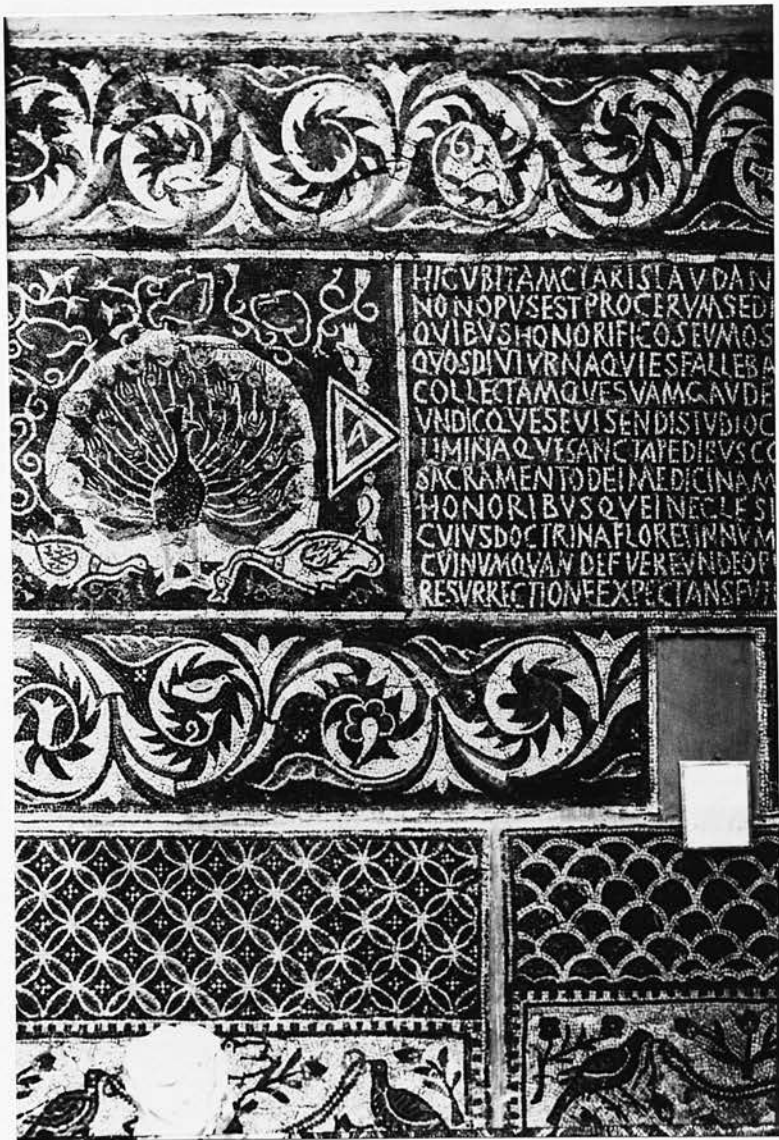 HICVBITAMCLARISLAVDAN
NONOPVSESTPROCERVMSED
QVIBVSHONORIFICOSEVMOS
QVOSDIVIVRNAQVIESFALLEBA
COLLECTAMQVESVAMGAVDE
VNDICQVESEVISENDISTVDIOC
LIMINAQVESANCTAPEDIBVSCO
SACRAMENTODEIMEDICINAM
HONORIBVSQVEINECLESI
CVIVSDOCTRINAFLORETINNVM
CVINVMQVANDEFVEREVNDEOP
RESVRRECTIONEEXPECTANSFVT